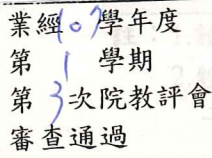 業經107學年度
第1學期
第3次院教評會
審查通過